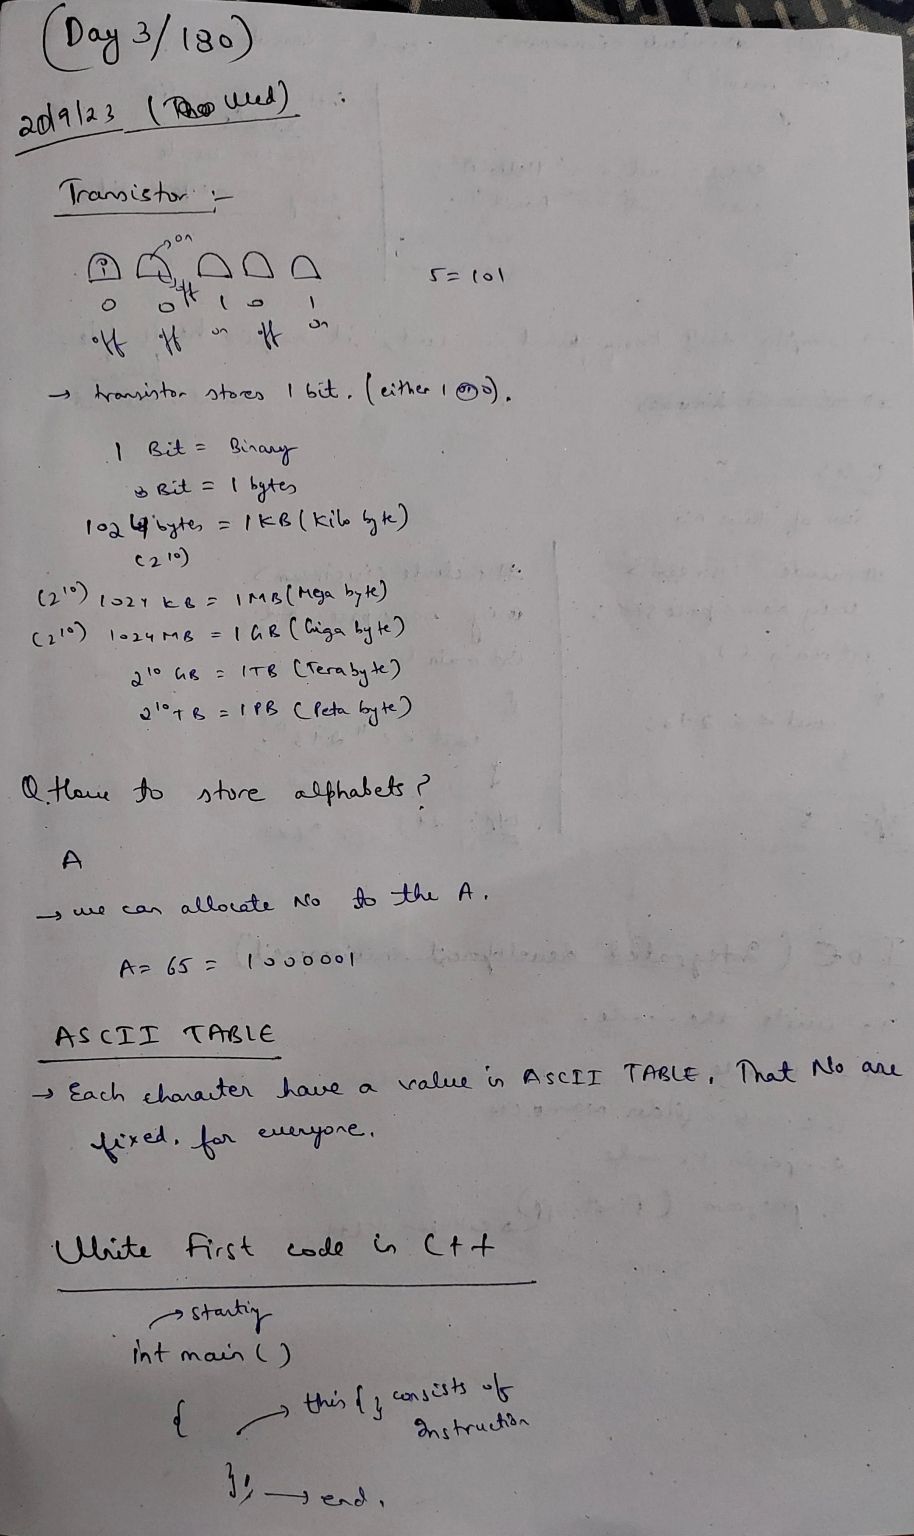 (Day 3/180)
20/9/23 (Wed) :
Transistor :-
on
off
5 = 101
0 0 1 0 1
off off on off on
→ transistor stores 1 bit. (either 1 or 0).
1 Bit = Binary
8 Bit = 1 bytes
1024 bytes = 1 KB (Kilo byte)
(2^10)
(2^10) 1024 KB = 1 MB (Mega byte)
(2^10) 1024 MB = 1 GB (Giga byte)
2^10 GB = 1TB (Tera byte)
2^10 TB = 1 PB (Peta byte)
Q. How to store alphabets?
A
→ we can allocate No to the A.
A = 65 = 1000001
ASCII TABLE
→ Each character have a value in ASCII TABLE. That No are
fixed. for everyone.
Write First code in C++
→ starting
int main ()
{ → this { } consists of
Instruction
}; → end.